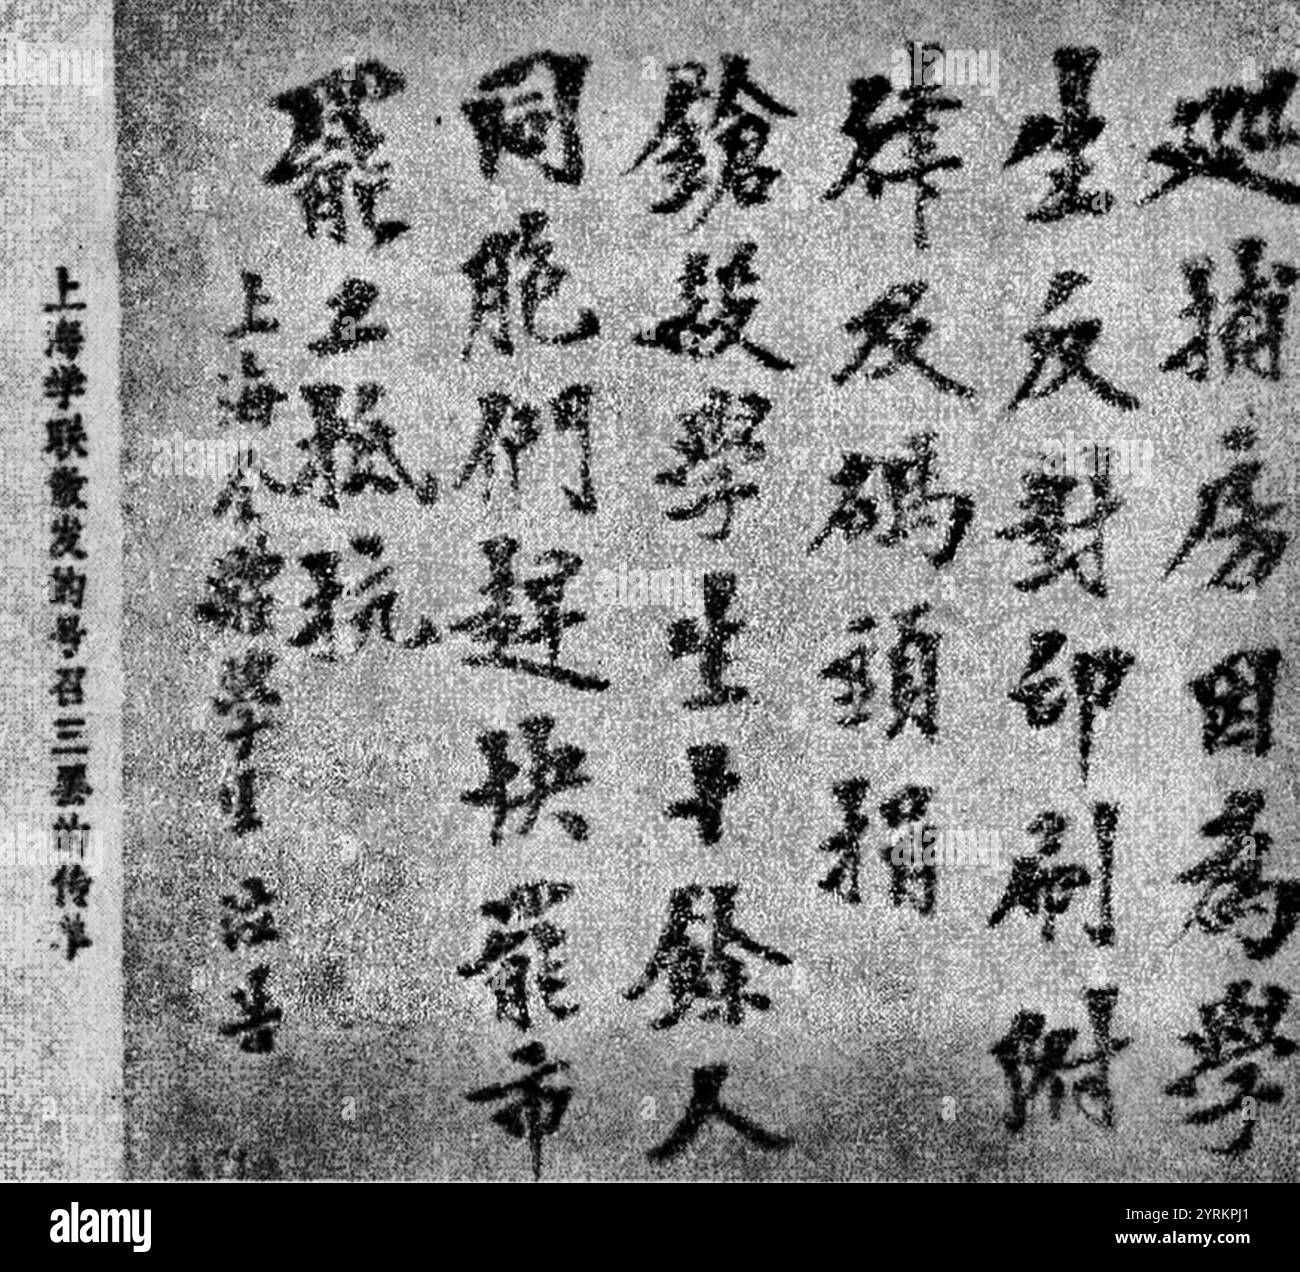 巡捕房因為學
生反對印刷附
律及碼頭捐
鎗殺學生十餘人
同胞們趕快罷市
罷工抵抗
上海全體學生泣告
上海学联散发的号召三罢的传单
alamy
Image ID: 2YRKPJ1
www.alamy.com